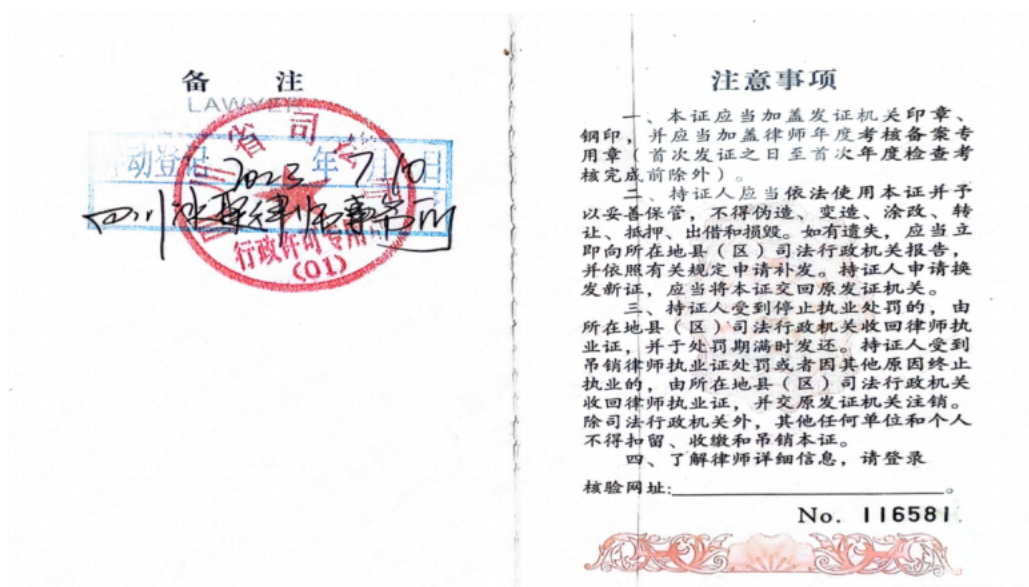 备 注
LAWYER
动登记 2023 年 7月10日
四川 律师事务所
省司
行政许可专用
(01)
注意事项
一、本证应当加盖发证机关印章、
钢印，并应当加盖律师年度考核备案专
用章（首次发证之日至首次年度检查考
核完成前除外）。
二、持证人应当依法使用本证并予
以妥善保管，不得伪造、变造、涂改、转
让、抵押、出借和损毁。如有遗失，应当立
即向所在地县（区）司法行政机关报告，
并依照有关规定申请补发。持证人申请换
发新证，应当将本证交回原发证机关。
三、持证人受到停止执业处罚的，由
所在地县（区）司法行政机关收回律师执
业证，并于处罚期满时发还。持证人受到
吊销律师执业证处罚或者因其他原因终止
执业的，由所在地县（区）司法行政机关
收回律师执业证，并交原发证机关注销。
除司法行政机关外，其他任何单位和个人
不得扣留、收缴和吊销本证。
四、了解律师详细信息，请登录
核验网址:。
No. 116581